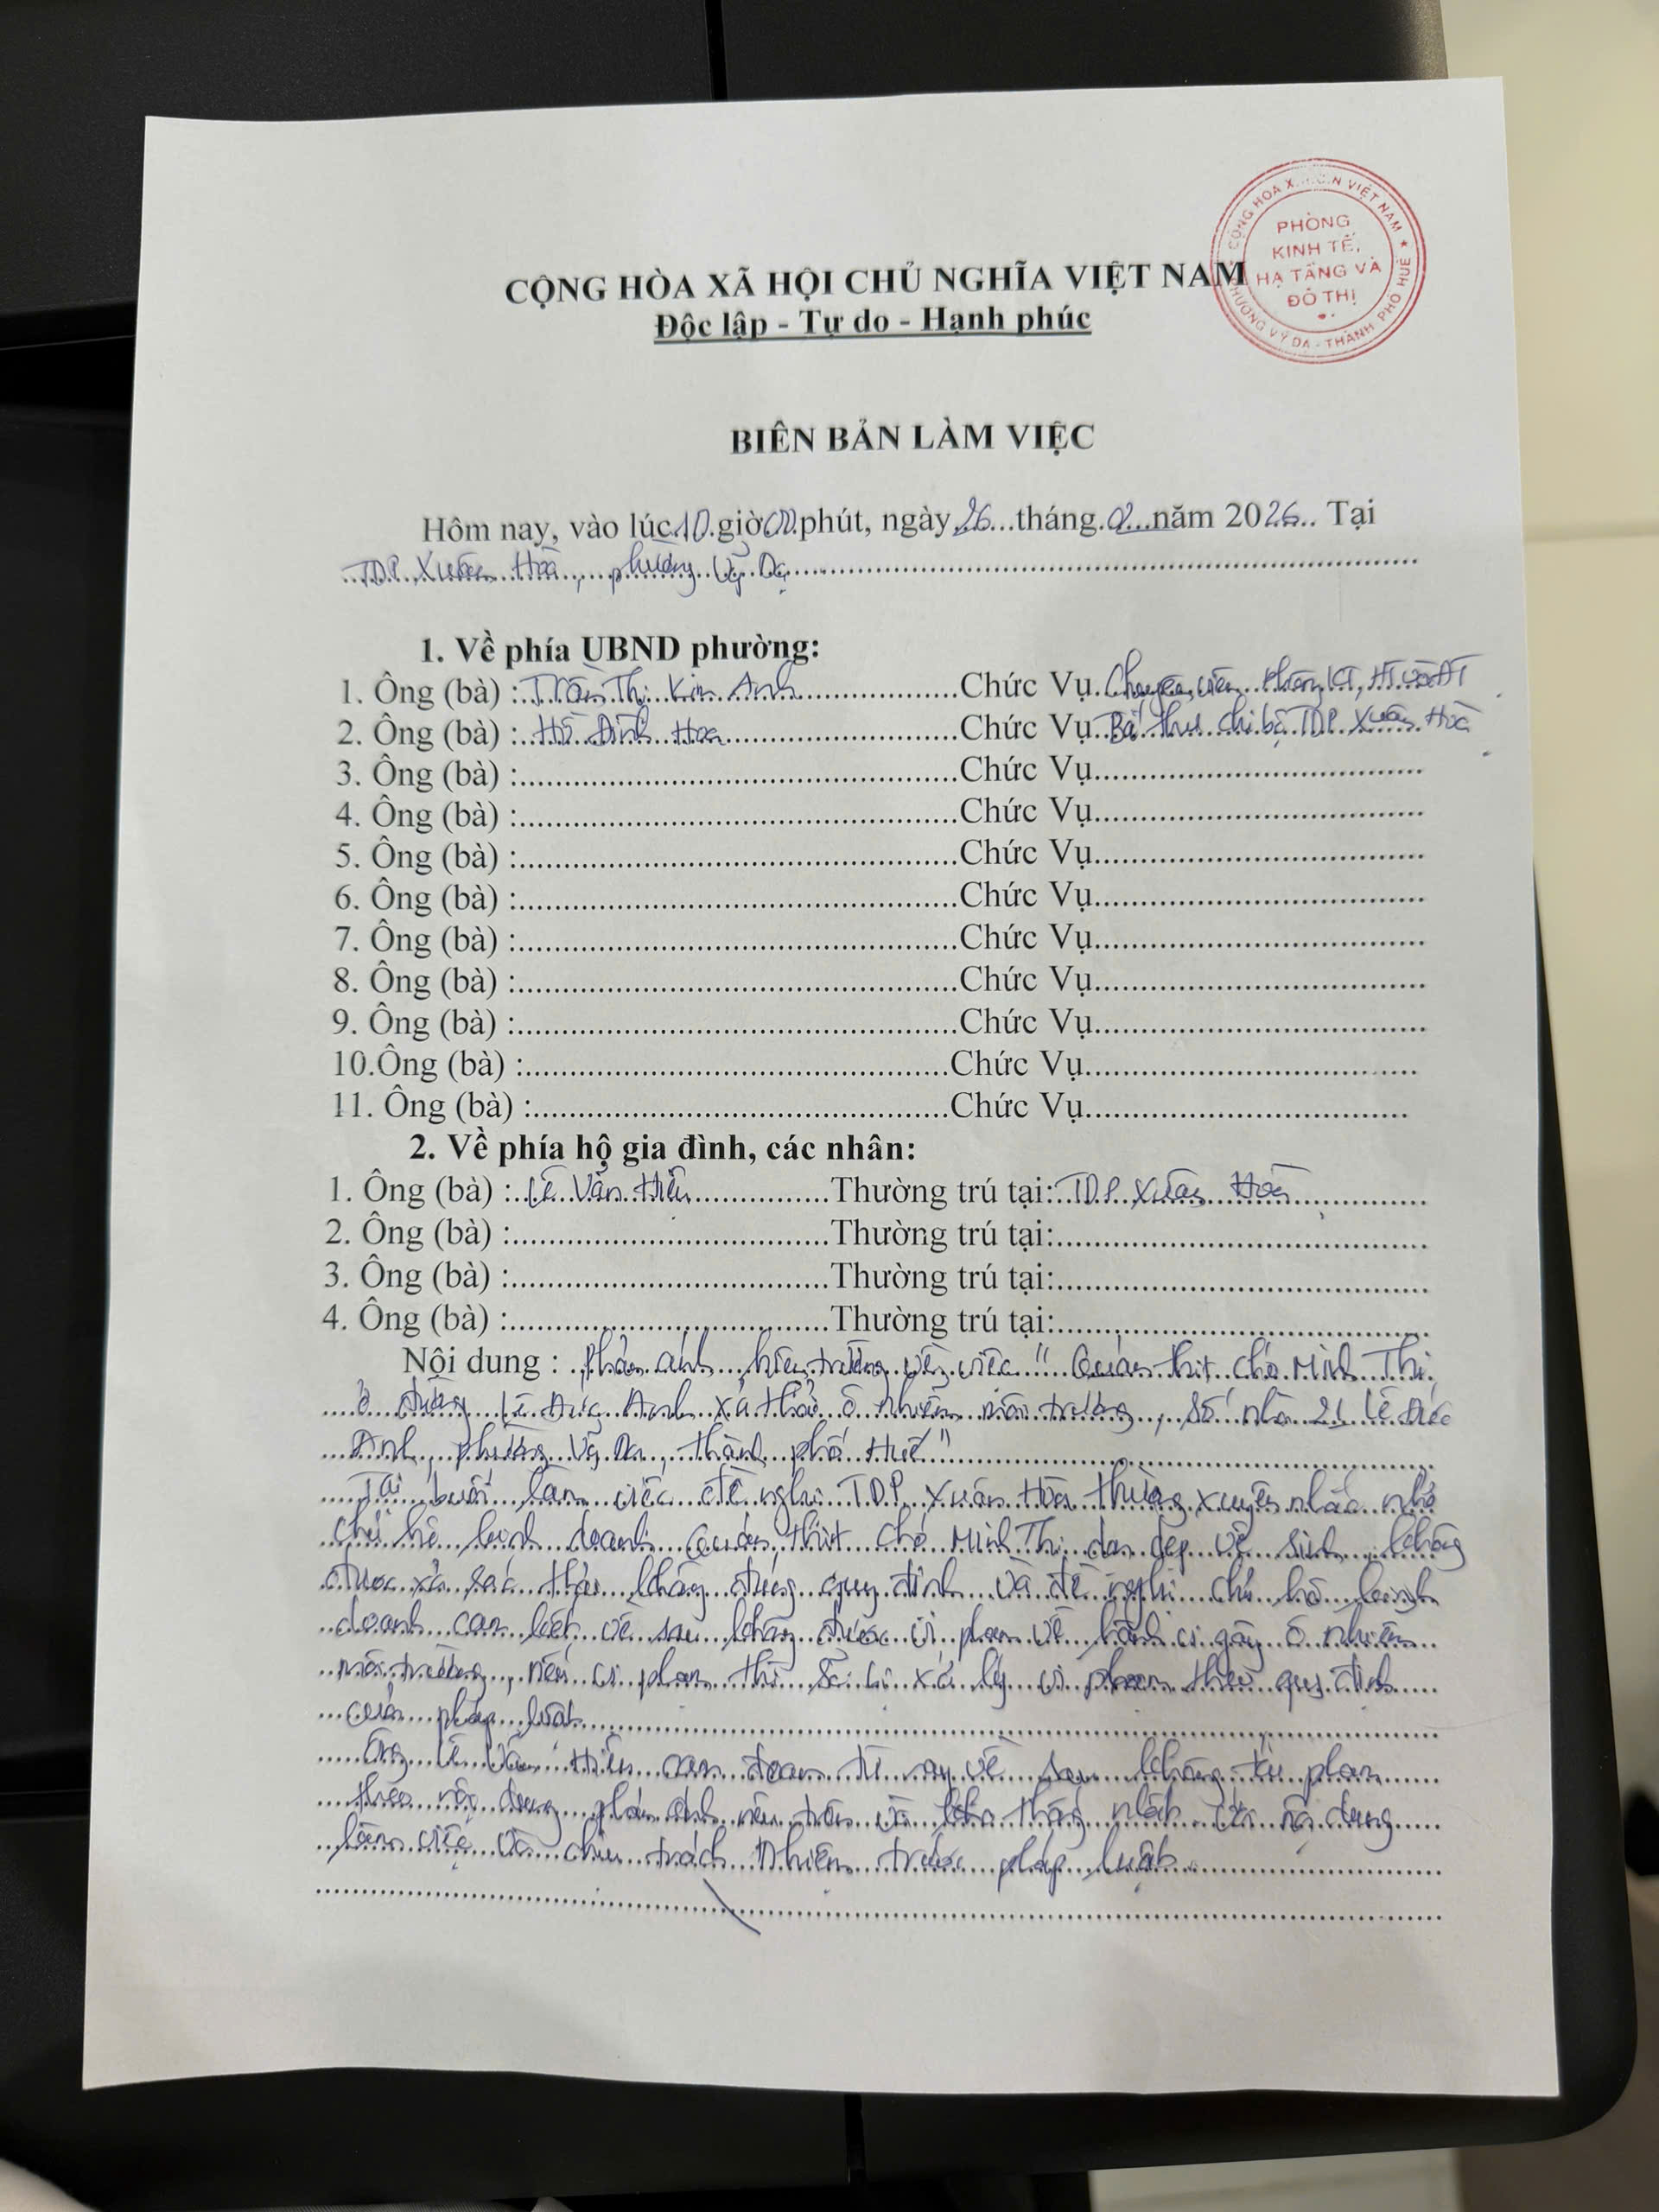 CỘNG HÒA X.H.C.N VIỆT NAM ★
PHƯỜNG VỸ DẠ - THÀNH PHỐ HUẾ ★
PHÒNG
KINH TẾ,
HẠ TẦNG VÀ
ĐÔ THỊ
CỘNG HÒA XÃ HỘI CHỦ NGHĨA VIỆT NAM
Độc lập - Tự do - Hạnh phúc
BIÊN BẢN LÀM VIỆC
Hôm nay, vào lúc 10 giờ 00 phút, ngày 26 tháng 02 năm 2026 Tại
TDP Xuân Hòa, phường Vỹ Dạ
1. Về phía UBND phường:
1. Ông (bà) : Trần Thị Kim Anh Chức Vụ Chuyên viên Phòng KT, HT và ĐT
2. Ông (bà) : Hồ Đình Hoa Chức Vụ Bí thư chi bộ TDP Xuân Hòa
3. Ông (bà) : Chức Vụ
4. Ông (bà) : Chức Vụ
5. Ông (bà) : Chức Vụ
6. Ông (bà) : Chức Vụ
7. Ông (bà) : Chức Vụ
8. Ông (bà) : Chức Vụ
9. Ông (bà) : Chức Vụ
10.Ông (bà) : Chức Vụ
11. Ông (bà) : Chức Vụ
2. Về phía hộ gia đình, các nhân:
1. Ông (bà) : Lê Văn Thường trú tại: TDP Xuân Hòa
2. Ông (bà) : Thường trú tại:
3. Ông (bà) : Thường trú tại:
4. Ông (bà) : Thường trú tại:
Nội dung : Phản ánh hiện trường về việc " Quán thịt chó Minh Thi
ở đường Lê Đức Anh xả thải ô nhiễm môi trường, số nhà 21 Lê Đức
Anh, phường Vỹ Dạ, thành phố Huế"
Tại buổi làm việc đề nghị TDP Xuân Hòa thường xuyên nhắc nhở
chủ hộ kinh doanh Quán thịt chó Minh Thi dọn dẹp vệ sinh, không
được xả rác thải không đúng quy định và đề nghị chủ hộ kinh
doanh cam kết về sau không được vi phạm về hành vi gây ô nhiễm
môi trường, nếu vi phạm thì sẽ bị xử lý vi phạm theo quy định
của pháp luật
Ông Lê Văn cam đoan từ nay về sau không tái phạm
theo nội dung phản ánh nêu trên và nội dung
làm việc và chịu trách nhiệm trước pháp luật.